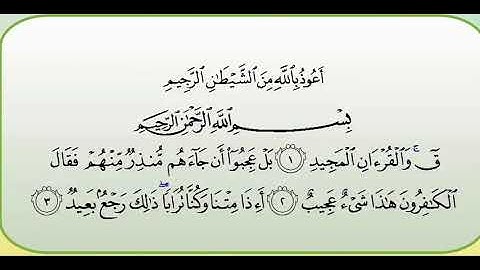 أَعُوذُ بِاللَّهِ مِنَ الشَّيْطَانِ الرَّجِيمِ
بِسْمِ اللَّهِ الرَّحْمَٰنِ الرَّحِيمِ
قٓ ۚ وَالْقُرْءَانِ الْمَجِيدِ ١ بَلْ عَجِبُوٓا۟ أَن جَآءَهُم مُّنذِرٌ مِّنْهُمْ فَقَالَ
الْكَٰفِرُونَ هَٰذَا شَىْءٌ عَجِيبٌ ٢ أَءِذَا مِتْنَا وَكُنَّا تُرَابًا ۖ ذَٰلِكَ رَجْعٌۢ بَعِيدٌ ٣